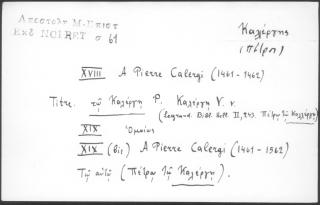 Ἀποστολ Μ-Ἐπιστ
Ἐκδ NOIRET σ 61
Καλέργης
(Πέτρος)
XVIII A Pierre Calergi (1461-1462)
Titre. τῷ Καλέργῃ P. Καλέργη V. v.
(Legrand. Bibl. Hell. II, 243. Πέτρῳ τῷ Καλλέργῃ)
XIX Ὁμοίως
XIX (bis) A Pierre Calergi (1461-1562)
Τῷ αὐτῷ (Πέτρῳ τῷ Καλέργῃ).